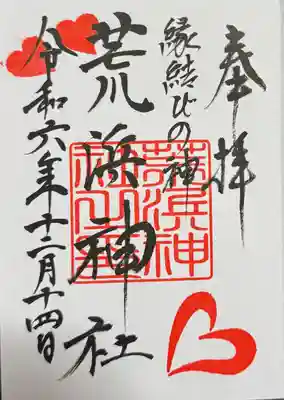 奉拝
縁結びの神
荒浜神社
令和六年十二月十四日